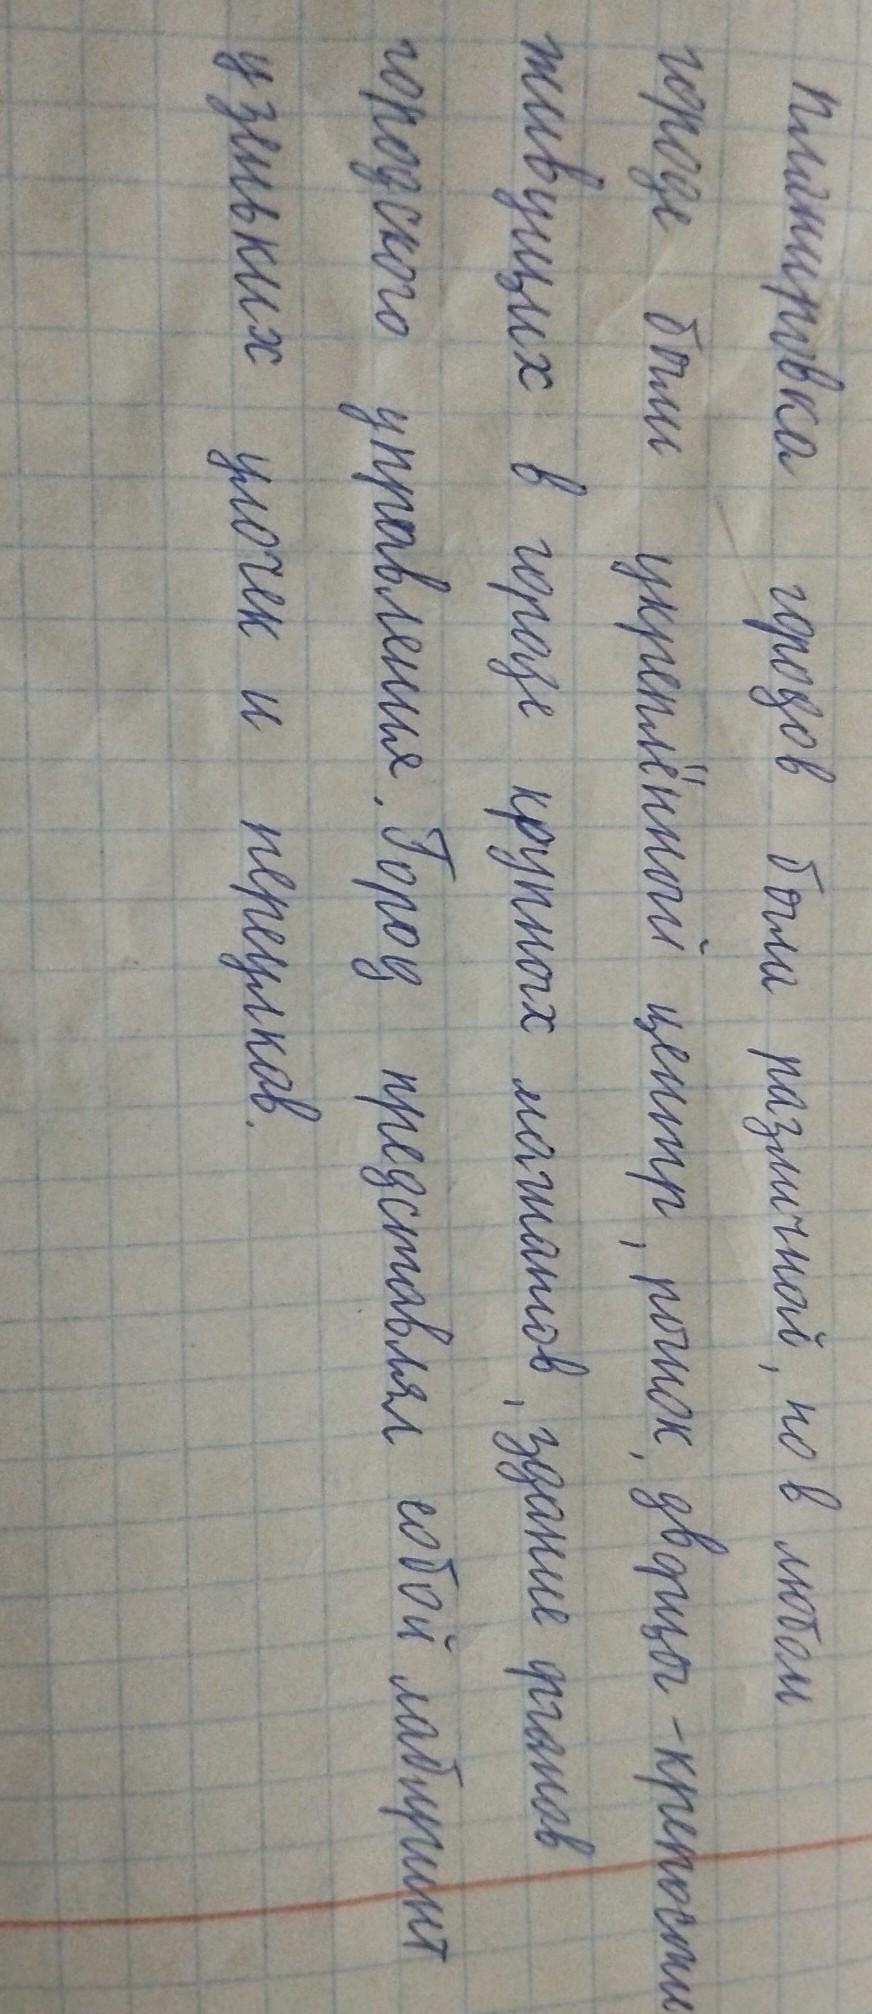 планировка городов была различной, но в любом
городе были укреплённый центр, рынок, дворцы-крепости
живущих в городе крупных магнатов, здание органов
городского управления. Город представлял собой лабиринт
узеньких улочек и переулков.